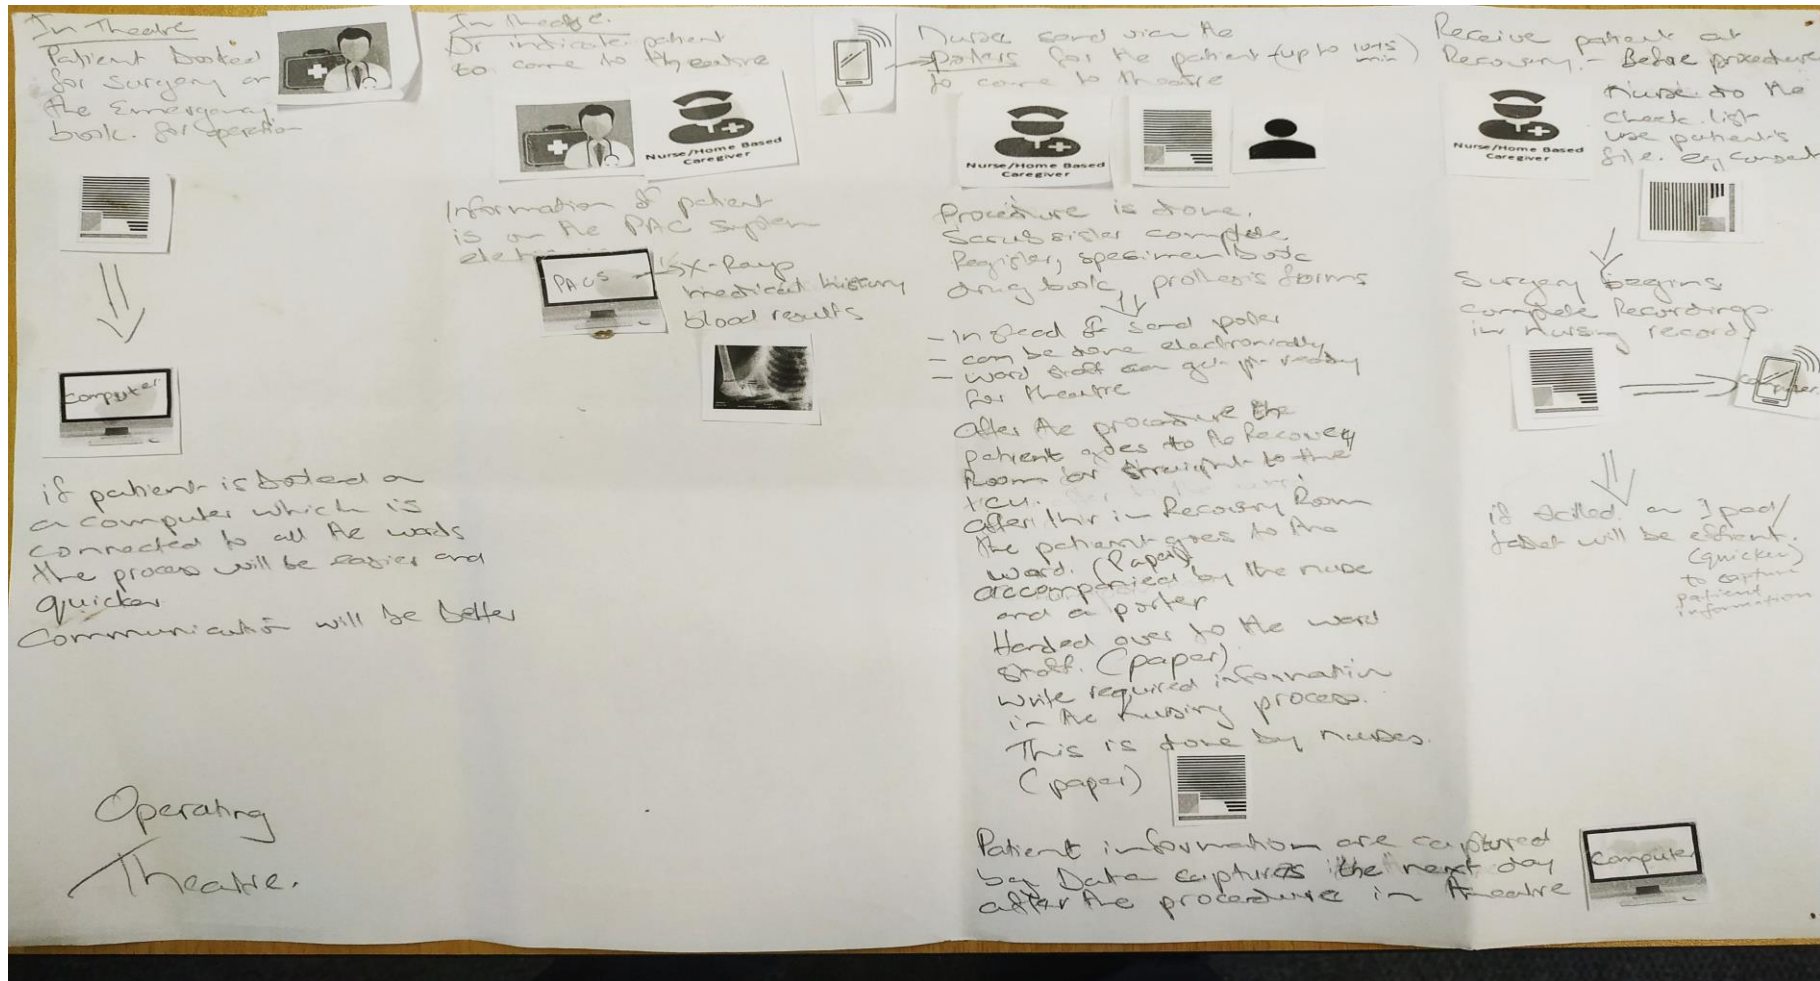 In Theatre
Patient booked
for surgery on
the Emergency
book. for operation
computer
if patient is booked on
a computer which is
connected to all the wards
the process will be easier and
quicker
Communication will be better
Operating
Theatre.
In theatre.
Dr indicate patient
to come to theatre
Nurse/Home Based
Caregiver
Information of patient
is on the PAC system
PACS
X-Rays
medical history
blood results
Nurse send via the
porters for the patient (up to 1045 min)
to come to theatre
Nurse/Home Based
Caregiver
Procedure is done.
Scrub sister complete
Register, specimen book
drug book, prothesis forms
- Instead of send poter
- can be done electronically
- ward staff can get ready
for theatre
After the procedure the
patient goes to the Recovery
Room or straight to the
ICU.
After this in Recovery Room
the patient goes to the
ward. (Paper)
accompanied by the nurse
and a porter
Handed over to the ward
staff. (paper)
write required information
in the nursing process.
This is done by nurses.
(paper)
Patient information are captured
by Data captures the next day
after the procedure in theatre
computer
Receive patient at
Recovery. - Before procedure
Nurse/Home Based
Caregiver
Nurse do the
check list
use patient's
file. eg consent
Surgery begins
complete Recordings
in nursing record.
computer
if on Ipad/
tablet will be
(quicker)
to capture
patient
information